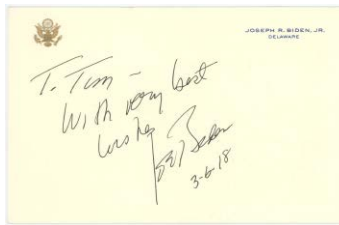 JOSEPH R. BIDEN, JR.
DELAWARE
T. Tim –
With very best
wishes
Joe Biden
3-6-18